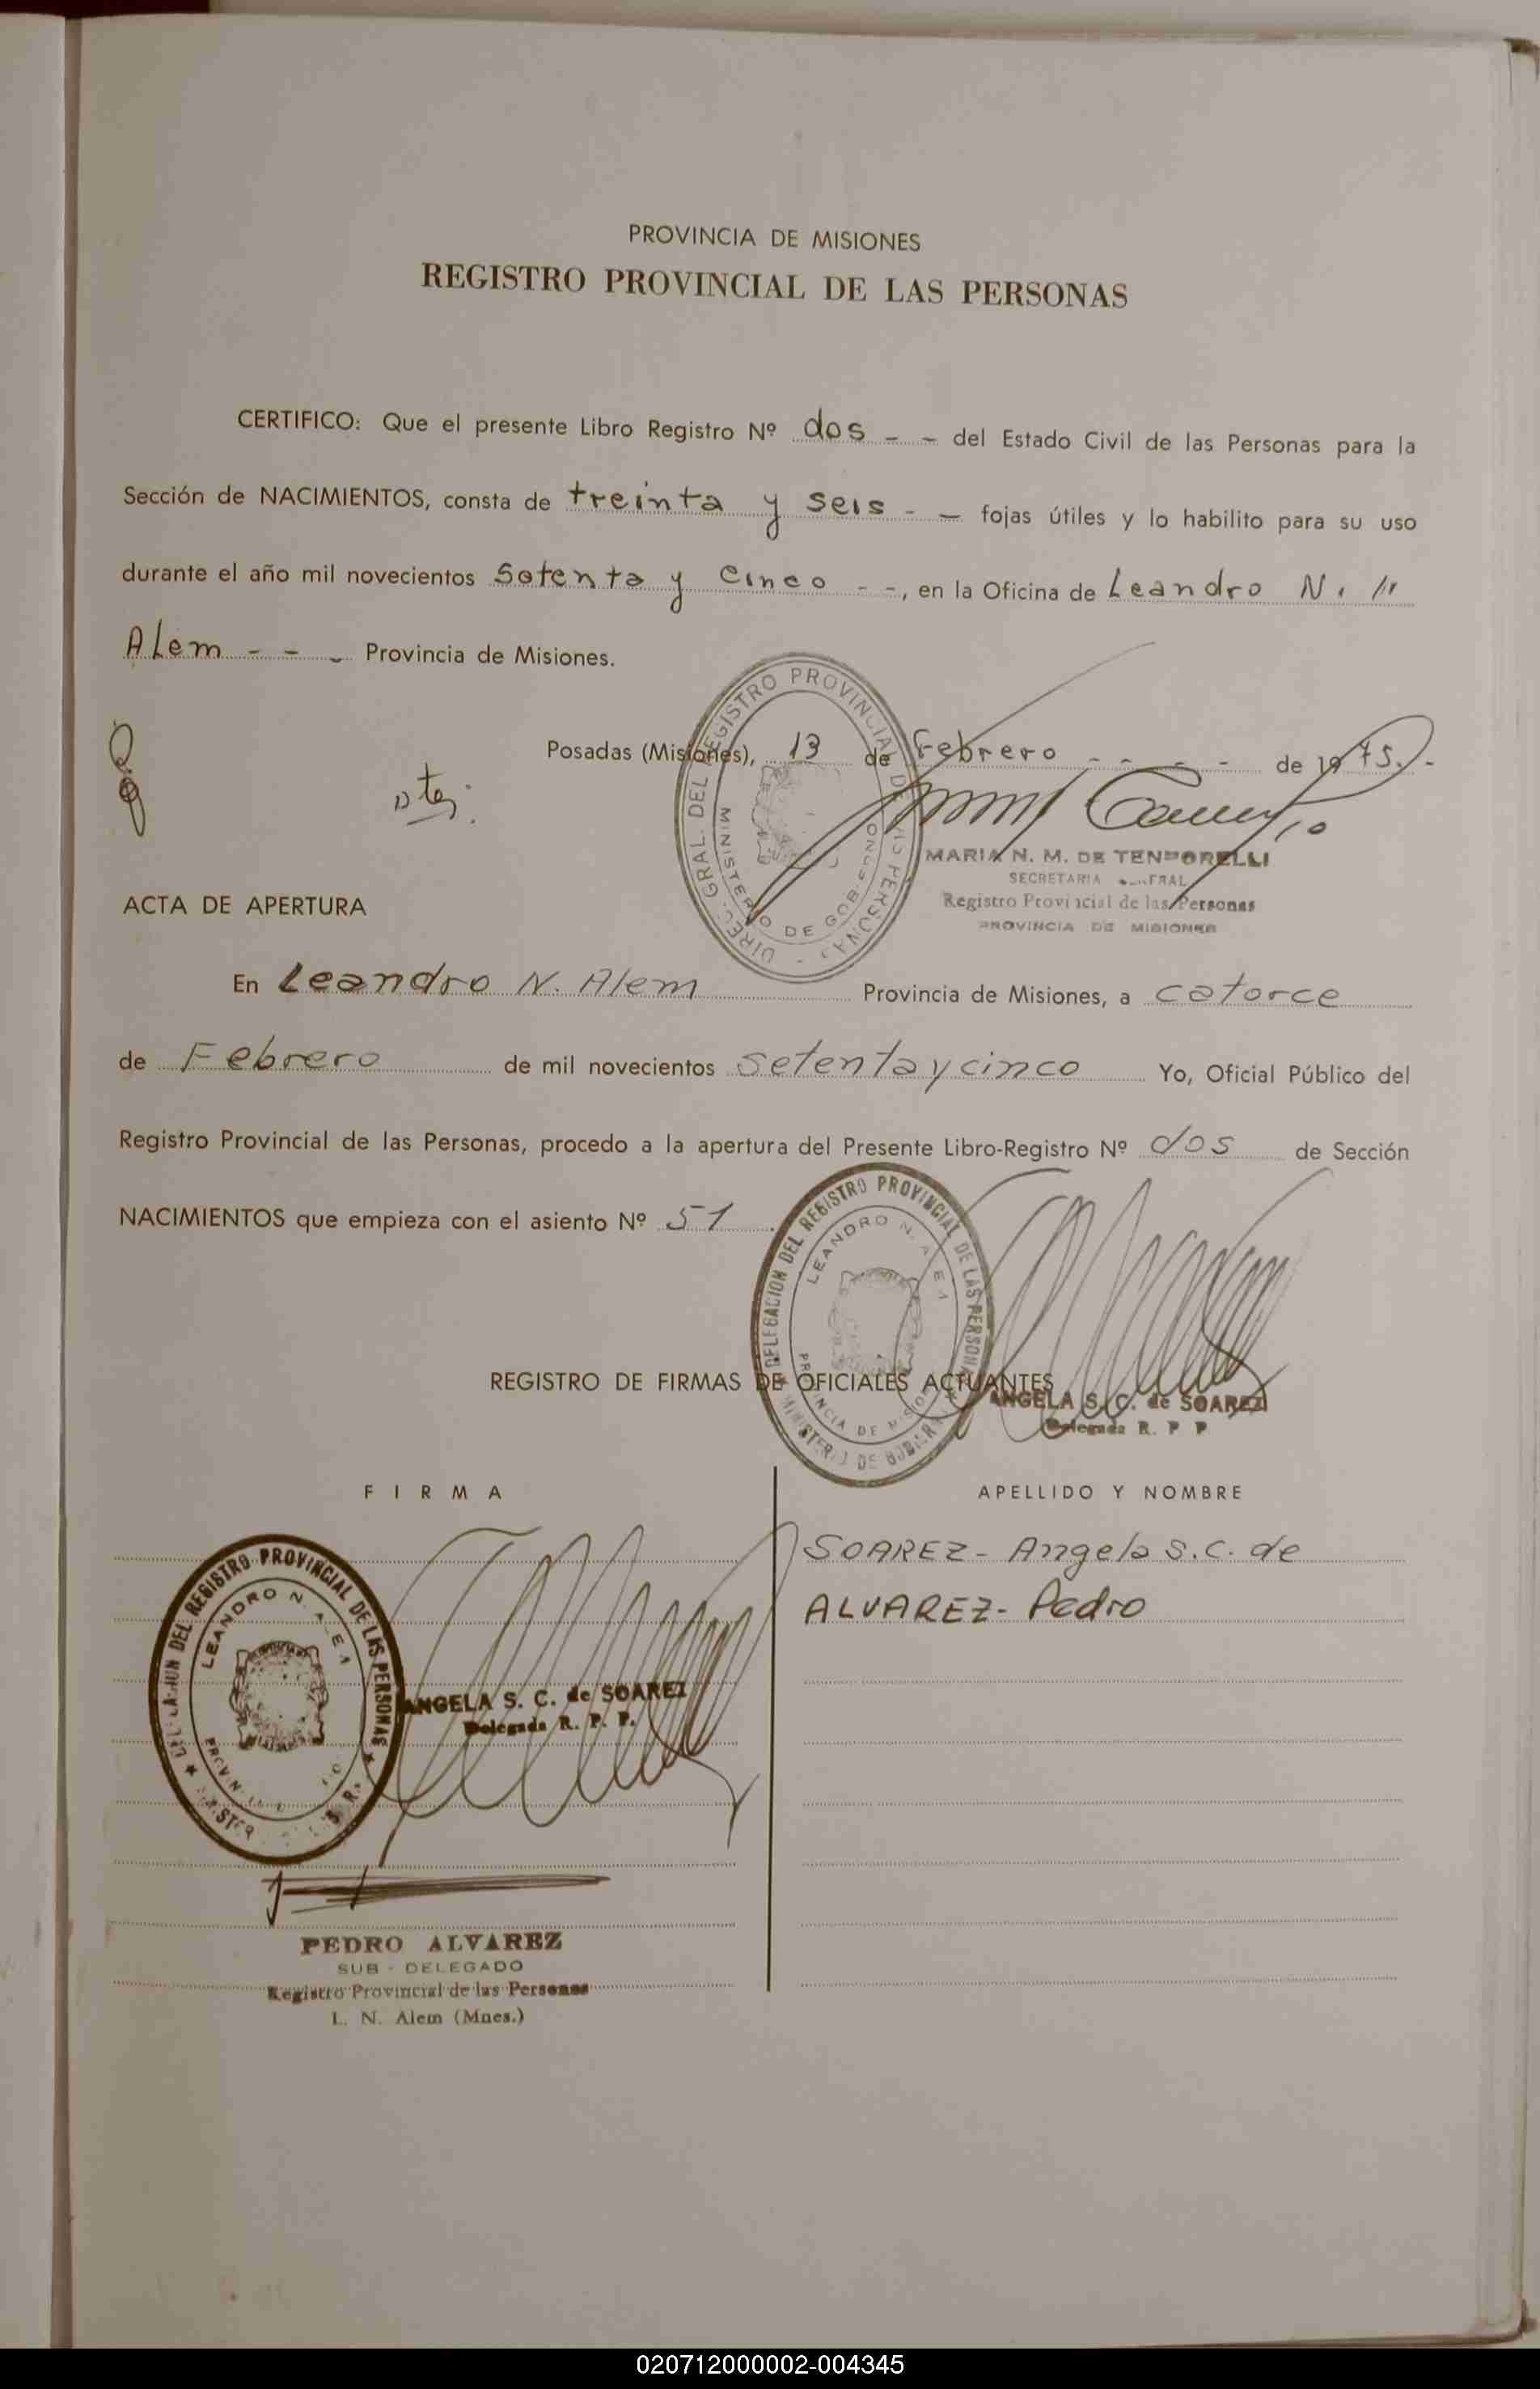 PROVINCIA DE MISIONES
REGISTRO PROVINCIAL DE LAS PERSONAS
CERTIFICO: Que el presente Libro Registro Nº dos - - del Estado Civil de las Personas para la
Sección de NACIMIENTOS, consta de treinta y seis - - fojas útiles y lo habilito para su uso
durante el año mil novecientos setenta y cinco - -, en la Oficina de Leandro N. "
Alem - - - Provincia de Misiones.
Posadas (Misiones), 13 de Febrero - - - - de 1975.-
MARIA N. M. DE TEMPORELLI
SECRETARIA GENERAL
Registro Provincial de las Personas
PROVINCIA DE MISIONES
DIREC. GRAL. DEL REGISTRO PROVINCIAL DE LAS PERSONAS
MINISTERIO DE GOBIERNO
ACTA DE APERTURA
En Leandro N. Alem Provincia de Misiones, a catorce
de Febrero de mil novecientos setenta y cinco Yo, Oficial Público del
Registro Provincial de las Personas, procedo a la apertura del Presente Libro-Registro Nº dos de Sección
NACIMIENTOS que empieza con el asiento Nº 51
DELEGACION DEL REGISTRO PROVINCIAL DE LAS PERSONAS
LEANDRO N. ALEM
PROVINCIA DE MISIONES
MINISTERIO DE GOBIERNO
REGISTRO DE FIRMAS DE OFICIALES ACTUANTES
ANGELA S. C. de SOAREZ
Delegada R. P. P.
FIRMA
APELLIDO Y NOMBRE
SOAREZ - Angela S. C. de
ALVAREZ - Pedro
DELEGACION DEL REGISTRO PROVINCIAL DE LAS PERSONAS
LEANDRO N. ALEM
ANGELA S. C. de SOAREZ
Delegada R. P. P.
PEDRO ALVAREZ
SUB - DELEGADO
Registro Provincial de las Personas
L. N. Alem (Mnes.)
020712000002-004345